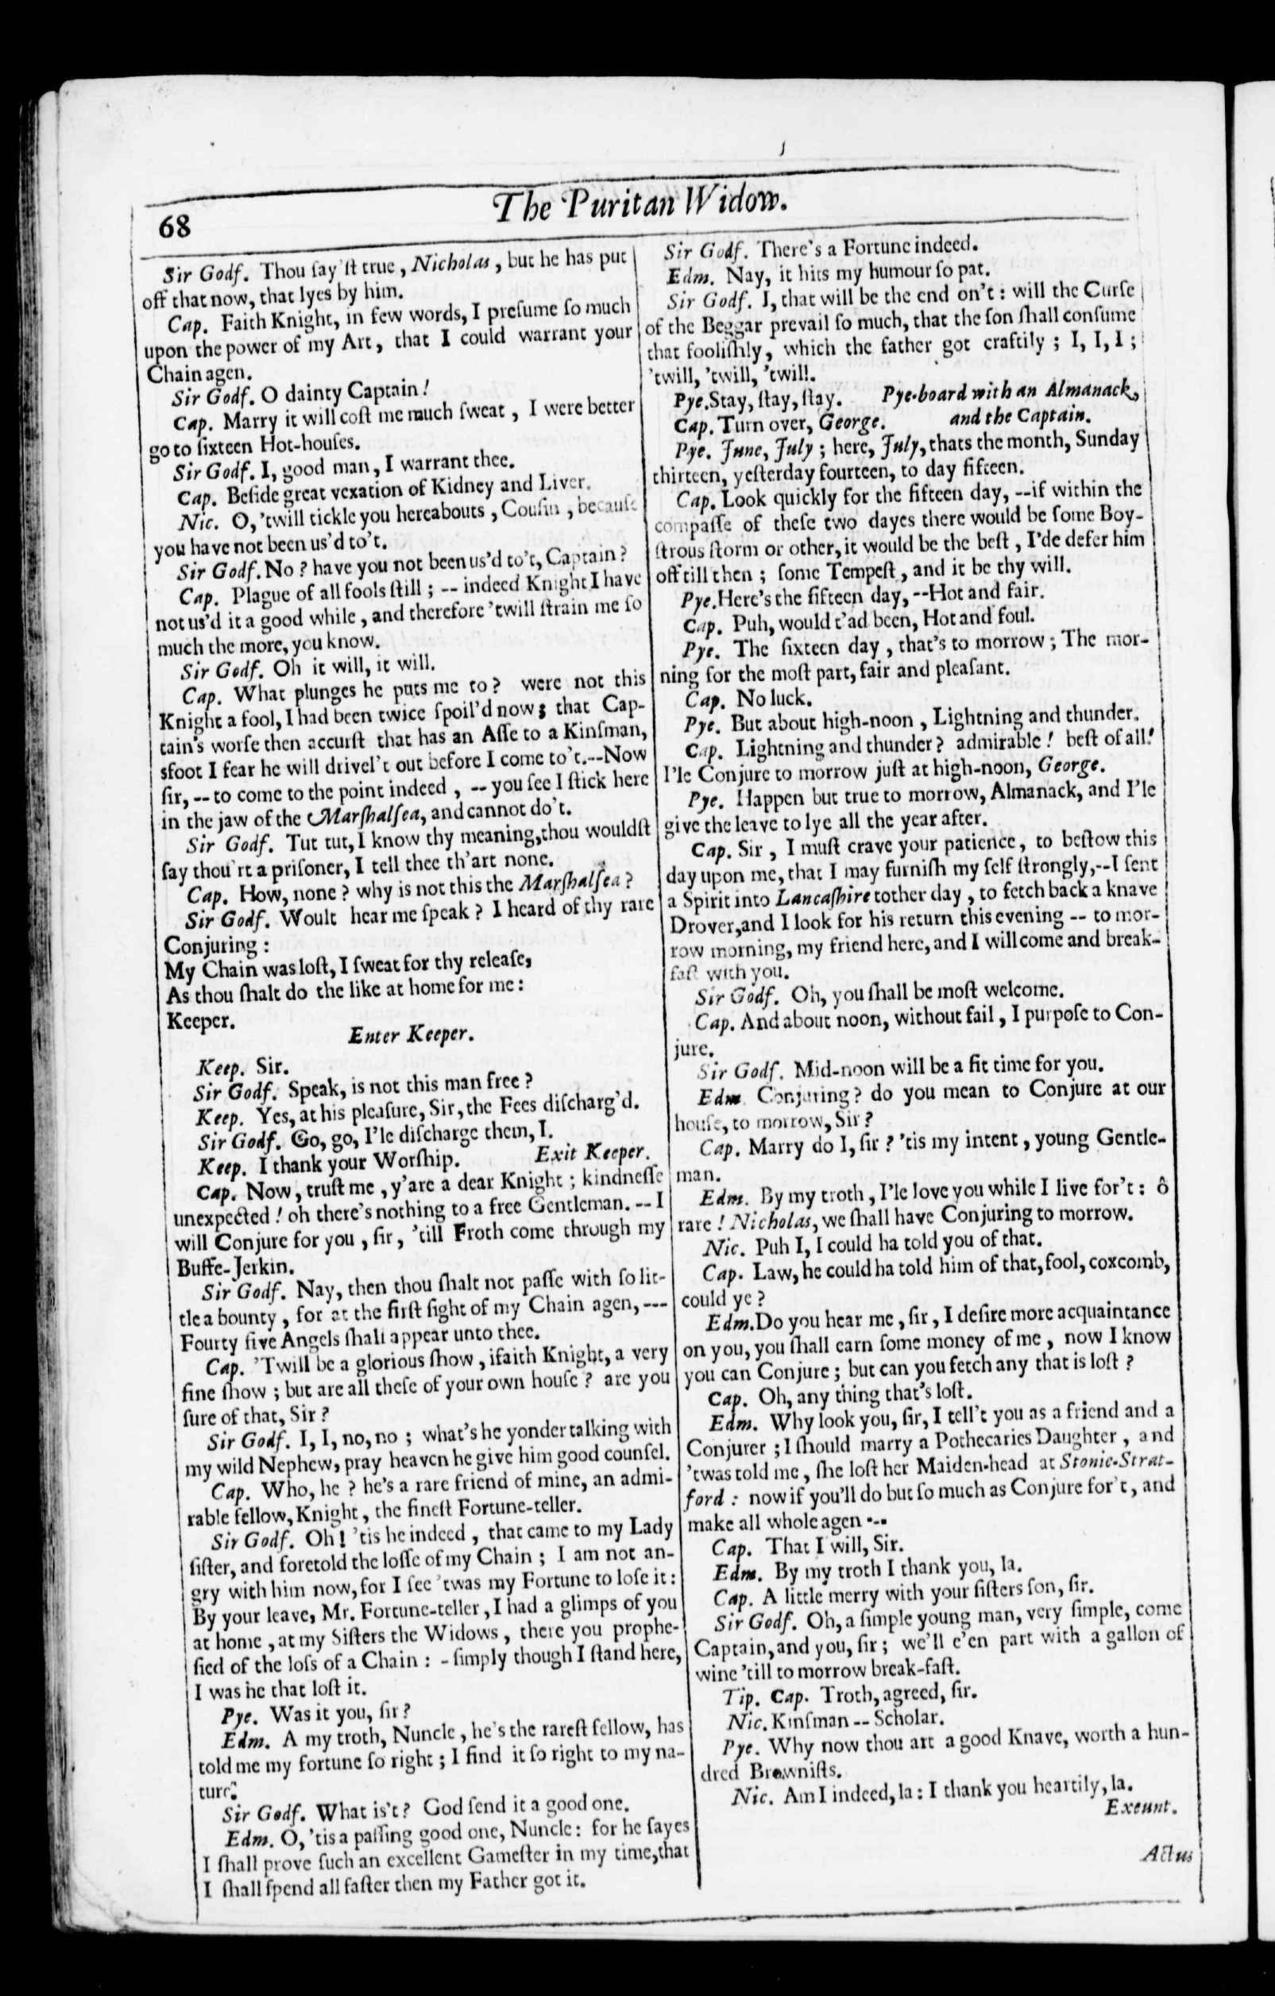 68
The Puritan Widow.
Sir Godf. Thou say'ſt true, Nicholas, but he has put
off that now, that lyes by him.
Cap. Faith Knight, in few words, I preſume ſo much
upon the power of my Art, that I could warrant your
Chain agen.
Sir Godf. O dainty Captain!
Cap. Marry it will coſt me much ſweat, I were better
go to ſixteen Hot-houſes.
Sir Godf. I, good man, I warrant thee.
Cap. Beſide great vexation of Kidney and Liver.
Nic. O, 'twill tickle you hereabouts, Couſin, becauſe
you have not been us'd to't.
Sir Godf. No? have you not been us'd to't, Captain?
Cap. Plague of all fools ſtill; -- indeed Knight I have
not us'd it a good while, and therefore 'twill ſtrain me ſo
much the more, you know.
Sir Godf. Oh it will, it will.
Cap. What plunges he puts me to? were not this
Knight a fool, I had been twice ſpoil'd now; that Cap-
tain's worſe then accurſt that has an Aſſe to a Kinſman,
sfoot I fear he will drivel't out before I come to't.--Now
ſir, -- to come to the point indeed, -- you ſee I ſtick here
in the jaw of the Marſhalſea, and cannot do't.
Sir Godf. Tut tut, I know thy meaning, thou wouldſt
ſay thou'rt a priſoner, I tell thee th'art none.
Cap. How, none? why is not this the Marſhalſea?
Sir Godf. Woult hear me ſpeak? I heard of thy rare
Conjuring:
My Chain was loſt, I ſweat for thy releaſe,
As thou ſhalt do the like at home for me:
Keeper.
Enter Keeper.
Keep. Sir.
Sir Godf. Speak, is not this man free?
Keep. Yes, at his pleaſure, Sir, the Fees diſcharg'd.
Sir Godf. Go, go, I'le diſcharge them, I.
Keep. I thank your Worſhip. Exit Keeper.
Cap. Now, truſt me, y'are a dear Knight; kindneſſe
unexpected! oh there's nothing to a free Gentleman. -- I
will Conjure for you, ſir, 'till Froth come through my
Buffe-Jerkin.
Sir Godf. Nay, then thou ſhalt not paſſe with ſo lit-
tle a bounty, for at the firſt ſight of my Chain agen, ---
Fourty five Angels ſhall appear unto thee.
Cap. 'Twill be a glorious ſhow, ifaith Knight, a very
fine ſhow; but are all theſe of your own houſe? are you
ſure of that, Sir?
Sir Godf. I, I, no, no; what's he yonder talking with
my wild Nephew, pray heaven he give him good counſel.
Cap. Who, he? he's a rare friend of mine, an admi-
rable fellow, Knight, the fineſt Fortune-teller.
Sir Godf. Oh! 'tis he indeed, that came to my Lady
ſiſter, and foretold the loſſe of my Chain; I am not an-
gry with him now, for I ſee 'twas my Fortune to loſe it:
By your leave, Mr. Fortune-teller, I had a glimps of you
at home, at my Siſters the Widows, there you prophe-
ſied of the loſs of a Chain: - ſimply though I ſtand here,
I was he that loſt it.
Pye. Was it you, ſir?
Edm. A my troth, Nuncle, he's the rareſt fellow, has
told me my fortune ſo right; I find it ſo right to my na-
ture.
Sir Godf. What is't? God ſend it a good one.
Edm. O, 'tis a paſſing good one, Nuncle: for he ſayes
I ſhall prove ſuch an excellent Gameſter in my time, that
I ſhall ſpend all faſter then my Father got it.
Sir Godf. There's a Fortune indeed.
Edm. Nay, it hits my humour ſo pat.
Sir Godf. I, that will be the end on't: will the Curſe
of the Beggar prevail ſo much, that the ſon ſhall conſume
that fooliſhly, which the father got craftily; I, I, I;
'twill, 'twill, 'twill.
Pye. Stay, ſtay, ſtay. Pye-board with an Almanack,
Cap. Turn over, George. and the Captain.
Pye. June, July; here, July, thats the month, Sunday
thirteen, yeſterday fourteen, to day fifteen.
Cap. Look quickly for the fifteen day, --if within the
compaſſe of theſe two dayes there would be ſome Boy-
ſtrous ſtorm or other, it would be the beſt, I'de defer him
off till then; ſome Tempeſt, and it be thy will.
Pye. Here's the fifteen day, --Hot and fair.
Cap. Puh, would t'ad been, Hot and foul.
Pye. The ſixteen day, that's to morrow; The mor-
ning for the moſt part, fair and pleaſant.
Cap. No luck.
Pye. But about high-noon, Lightning and thunder.
Cap. Lightning and thunder? admirable! beſt of all!
I'le Conjure to morrow juſt at high-noon, George.
Pye. Happen but true to morrow, Almanack, and I'le
give the leave to lye all the year after.
Cap. Sir, I muſt crave your patience, to beſtow this
day upon me, that I may furniſh my ſelf ſtrongly,--I ſent
a Spirit into Lancaſhire tother day, to fetch back a knave
Drover, and I look for his return this evening -- to mor-
row morning, my friend here, and I will come and break-
faſt with you.
Sir Godf. Oh, you ſhall be moſt welcome.
Cap. And about noon, without fail, I purpoſe to Con-
jure.
Sir Godf. Mid-noon will be a fit time for you.
Edm. Conjuring? do you mean to Conjure at our
houſe, to morrow, Sir?
Cap. Marry do I, ſir? 'tis my intent, young Gentle-
man.
Edm. By my troth, I'le love you while I live for't: ô
rare! Nicholas, we ſhall have Conjuring to morrow.
Nic. Puh I, I could ha told you of that.
Cap. Law, he could ha told him of that, fool, coxcomb,
could ye?
Edm. Do you hear me, ſir, I deſire more acquaintance
on you, you ſhall earn ſome money of me, now I know
you can Conjure; but can you fetch any that is loſt?
Cap. Oh, any thing that's loſt.
Edm. Why look you, ſir, I tell't you as a friend and a
Conjurer; I ſhould marry a Pothecaries Daughter, and
'twas told me, ſhe loſt her Maiden-head at Stonie-Strat-
ford: now if you'll do but ſo much as Conjure for't, and
make all whole agen ---
Cap. That I will, Sir.
Edm. By my troth I thank you, la.
Cap. A little merry with your ſiſters ſon, ſir.
Sir Godf. Oh, a ſimple young man, very ſimple, come
Captain, and you, ſir; we'll e'en part with a gallon of
wine 'till to morrow break-faſt.
Tip. Cap. Troth, agreed, ſir.
Nic. Kinſman -- Scholar.
Pye. Why now thou art a good Knave, worth a hun-
dred Browniſts.
Nic. Am I indeed, la: I thank you heartily, la.
Exeunt.
Actus